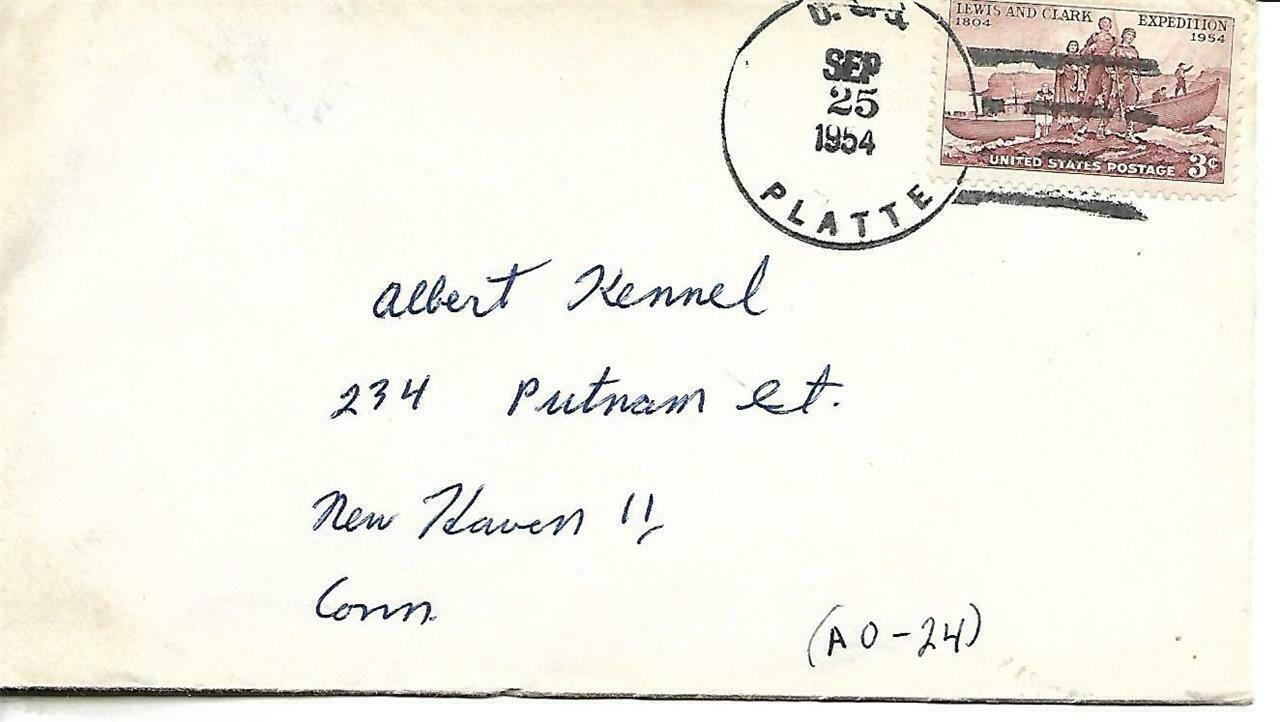 LEWIS AND CLARK EXPEDITION
1804 1954
UNITED STATES POSTAGE 3¢
U.S.S.
SEP
25
1954
PLATTE
Albert Kennel
234 Putnam St.
New Haven 11,
Conn.
(AO-24)